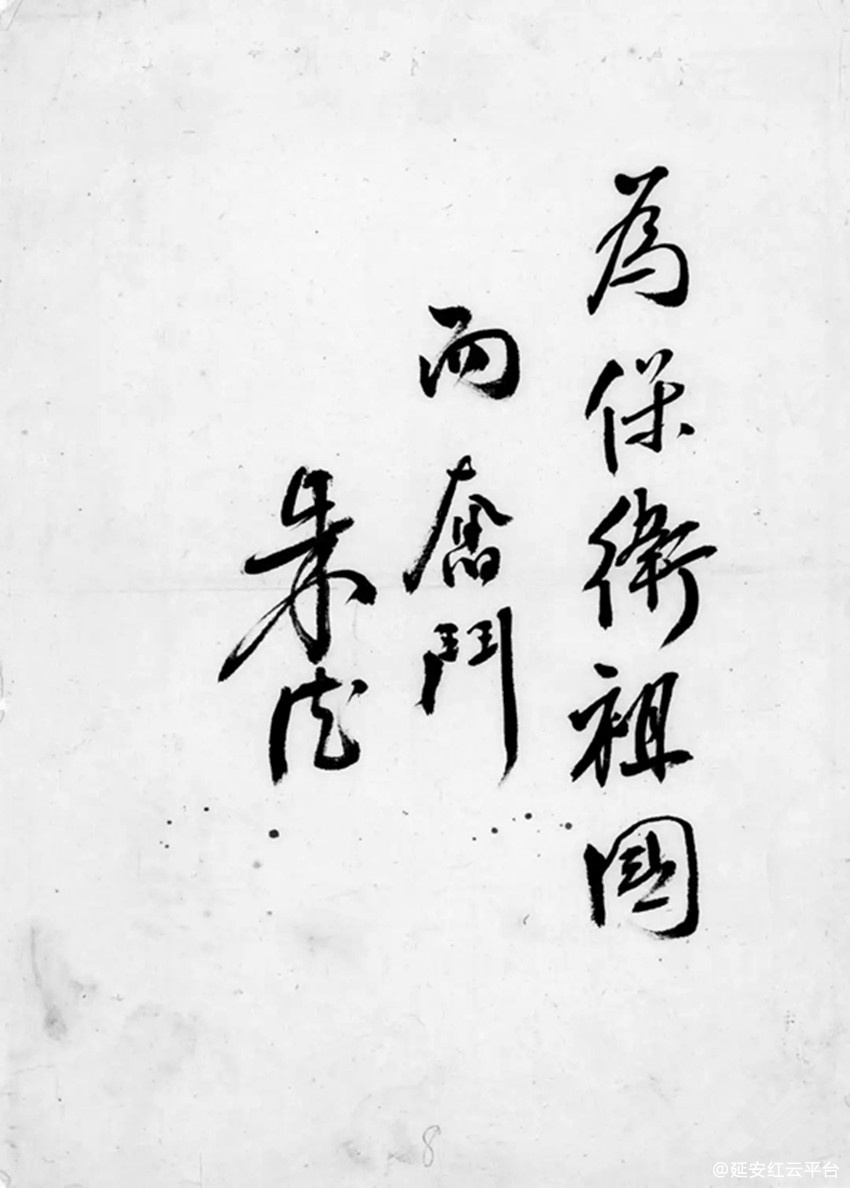 為保衛祖國
而奮鬥
朱德
8
@延安红云平台